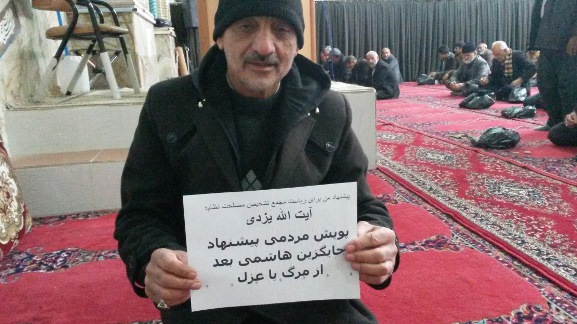 پیشنهاد من برای ریاست مجمع تشخیص مصلحت نظام:
آیت الله یزدی
پویش مردمی پیشنهاد
جایگزین هاشمی بعد
از مرگ یا عزل